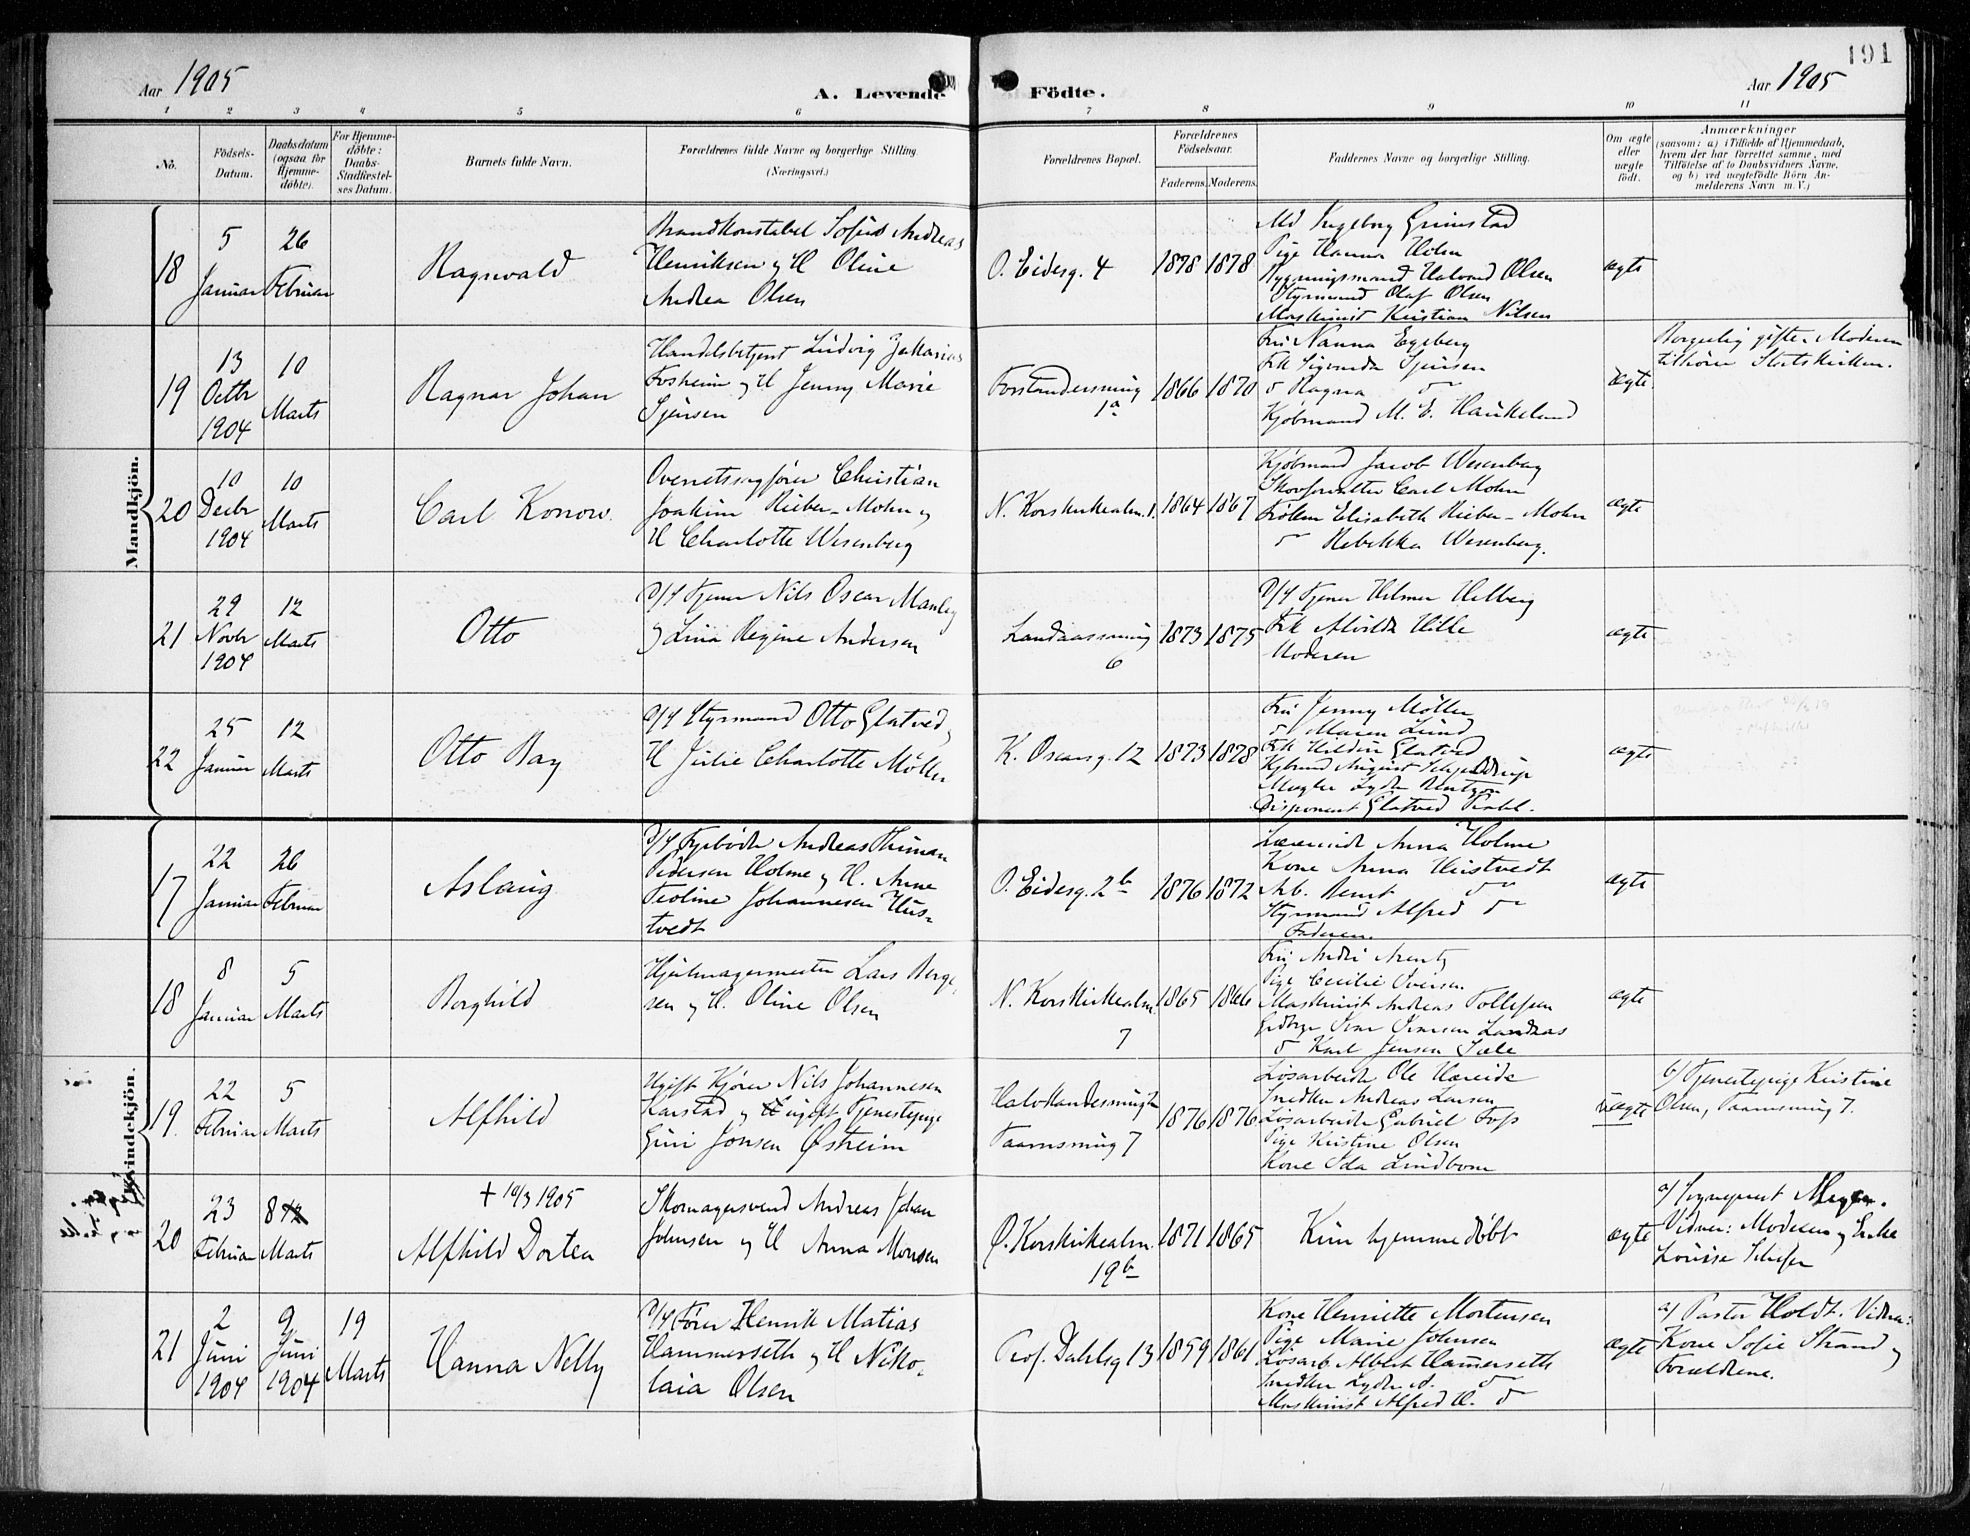 191
Aar 1905
A. Levende Födte.
Aar 1905
1 2 3 4 5 6 7 8 9 10 11
No.
Födsels-Datum.
Daabsdatum (ogsaa för Hjemme-döbte).
For Hjemme-döbte: Daabs-Stadfæstel-ses Datum.
Barnets fulde Navn.
Forældrenes fulde Navne og borgerlige Stilling. (Næringsvei.)
Forældrenes Bopæl.
Forældrenes Födselsaar.
Faderens. Moderens.
Faddernes Navne og borgerlige Stilling.
Om ægte eller uægte födt.
Anmærkninger
(saasom: a) i Tilfælde af Hjemmedaab, hvem der har forrettet samme, med Tilföielse af to Daabsvidners Navne, og b) ved uægtefödte Börn An-melderens Navn m. V.)
Mandkjön.
18
5 Januar
26 Februar
Ragnvald
Brandkonstabel Sofus Andreas
Henriksen og H Oline
Andrea Olsen
O. Eidesg. 4
1878 1878
Md Ingeborg Grimstad
Pige Hanna Holm
Bygningsmand Halvard Olsen
Styrmand Olaf Olsen
Maskinist Kristian Nilsen
ægte
19
13 Octbr 1904
10 Marts
Ragnar Johan
Handelsbetjent Ludvig Zakarias
Forheim og H Jenny Marie
Sjursen
Forstandersmug 1a
1866 1870
Fru Nanna Egeberg
Frk Sigurda Sjursen
do Ragna do
Kjøbmand M. E. Haukeland
ægte
Borgerlig gifte. Moderen
tilhører Statskirken.
20
10 Decbr 1904
10 Marts
Carl Konow.
Overretssagfører Christian
Joakim Rieber-Mohn og
H Charlotte Wesenberg
N. Korskirkealm. 1.
1864 1867
Kjøbmand Jacob Wesenberg
Skovforvalter Carl Mohn
Frøken Elisabeth Rieber-Mohn
do Rebekka Wesenberg.
ægte
21
29 Novbr 1904
12 Marts
Otto
D/S Fyrner Nils Oscar Manley
og Lina Regine Andersen
Landaassmug 6
1873 1875
D/S Fyrner Hilmer Helberg
Frk Alvilda Hille
Moderen
ægte
22
25 Januar
12 Marts
Otto Bay
D/S Styrmand Otto Glatved,
H Julie Charlotte Møller
K. Oscarsg. 12
1873 1878
Fru Jenny Møller
do Maren Lund
Frk Hildur Glatved
Kjøbmd August Schjelderup
Mægler Lyder
Disponent Glatved
ægte
Kvindekjön.
17
22 Januar
26 Februar
Aslaug
D/S Fyrbøder Andreas Thiman
Pedersen Holme og H. Anne
Teoline Johannesen Hus-
tvedt
O. Eidesg. 2b
1876 1872
Lærerinde Anna Holme
Kone Anna Hustvedt
Arb. Bernt do
Styrmand Alfred do
Faderen.
ægte
18
8 Januar
5 Marts
Borghild
Hjulmagermester Lars Berge-
sen og H. Oline Olsen
N. Korskirkealm. 7
1865 1866
Fru Andrea Arentz
Pige Cecilie Iversen
Maskinist Andreas Tollefsen
Gedbge Ivar Iversen Landaas
do Karl Jensen Sæle
ægte
19.
22 Februar
5 Marts
Alfhild
Ugift Kjører Nils Johannesen
Karstad og ugift Tjenestepige
Guri Jonsen Østreim
Taarnsmug 7
1876 1876
Løsarbeider Ole Hareide
Snedker Andreas Larsen
Løsarbeider Gabriel Foss
Pige Kristine Olsen
Kone Ida Lindbom
uægte
b/ Tjenestepige Kristine
Olsen, Taarnsmug 7.
20
23 Februar
8 Marts
+ 10/3 1905
Alfhild Dortea
Skomagersvend Andreas Johan
Johnsen og H Anna Monsen
Ø. Korskirkealm. 19b
1871 1865
Kun hjemmedøbt
ægte
a/ Sogneprest Meyer.
Vidner: Moderen og Enke
Lovise
21
2 Juni 1904
9 Juni 1904
19 Marts
Hanna Nelly
D/S Fører Henrik Matias
Hammerseth og H Niko-
laia Olsen
Prof. Dahlsg 13
1859 1861
Kone Henriette Mortensen
Pige Marie Johnsen
Løsarb Albert Hammerseth
Snedker Lyder A. do
Maskinist Alfred H. do
ægte
a/ Pastor Holdt. Vidner:
Kone Sofie Strand og
Forældrene.